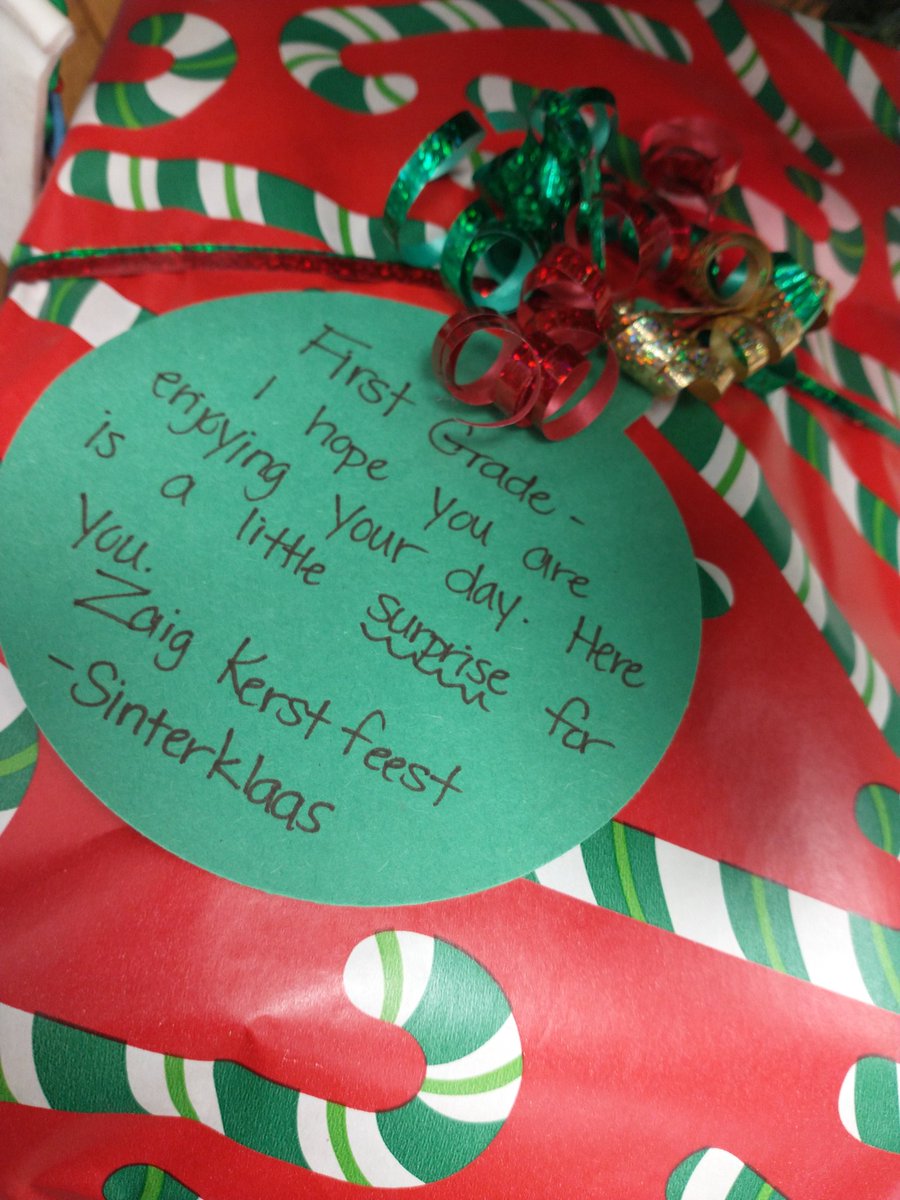 First Grade -
I hope you are
enjoying your day. Here
is a little surprise for
you.
Zaig Kerstfeest
-Sinterklaas